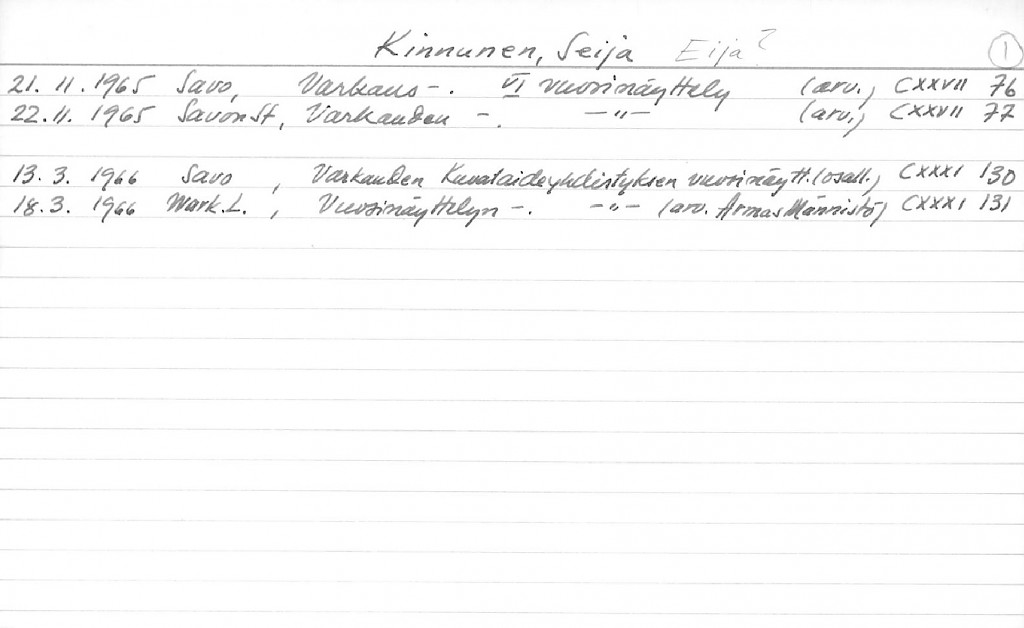 Kinnunen, Seija Eija? 1
21. 11. 1965 Savo, Varkaus -. VI vuosinäyttely (arv.) CXXVII 76
22. 11. 1965 Savon St, Varkauden -. -"- (arv.) CXXVII 77
13. 3. 1966 Savo , Varkauden Kuvataideyhdistyksen vuosinäytt. (osall.) CXXXI 130
18. 3. 1966 Wark. L. , Vuosinäyttelyn -. -"- (arv. Armas Männistö) CXXXI 131